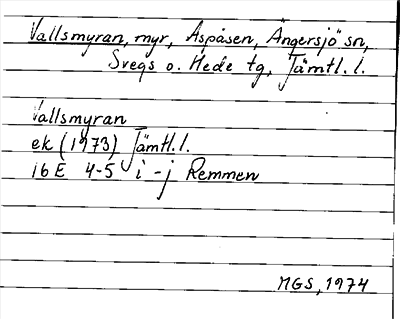 Vallsmyran, myr, Aspåsen, Ängersjö sn,
Svegs o. Hede tg, Jämtl. l.
Vallsmyran
ek (1973) Jämtl. l.
16 E 4-5 i - j Remmen
MGS, 1974